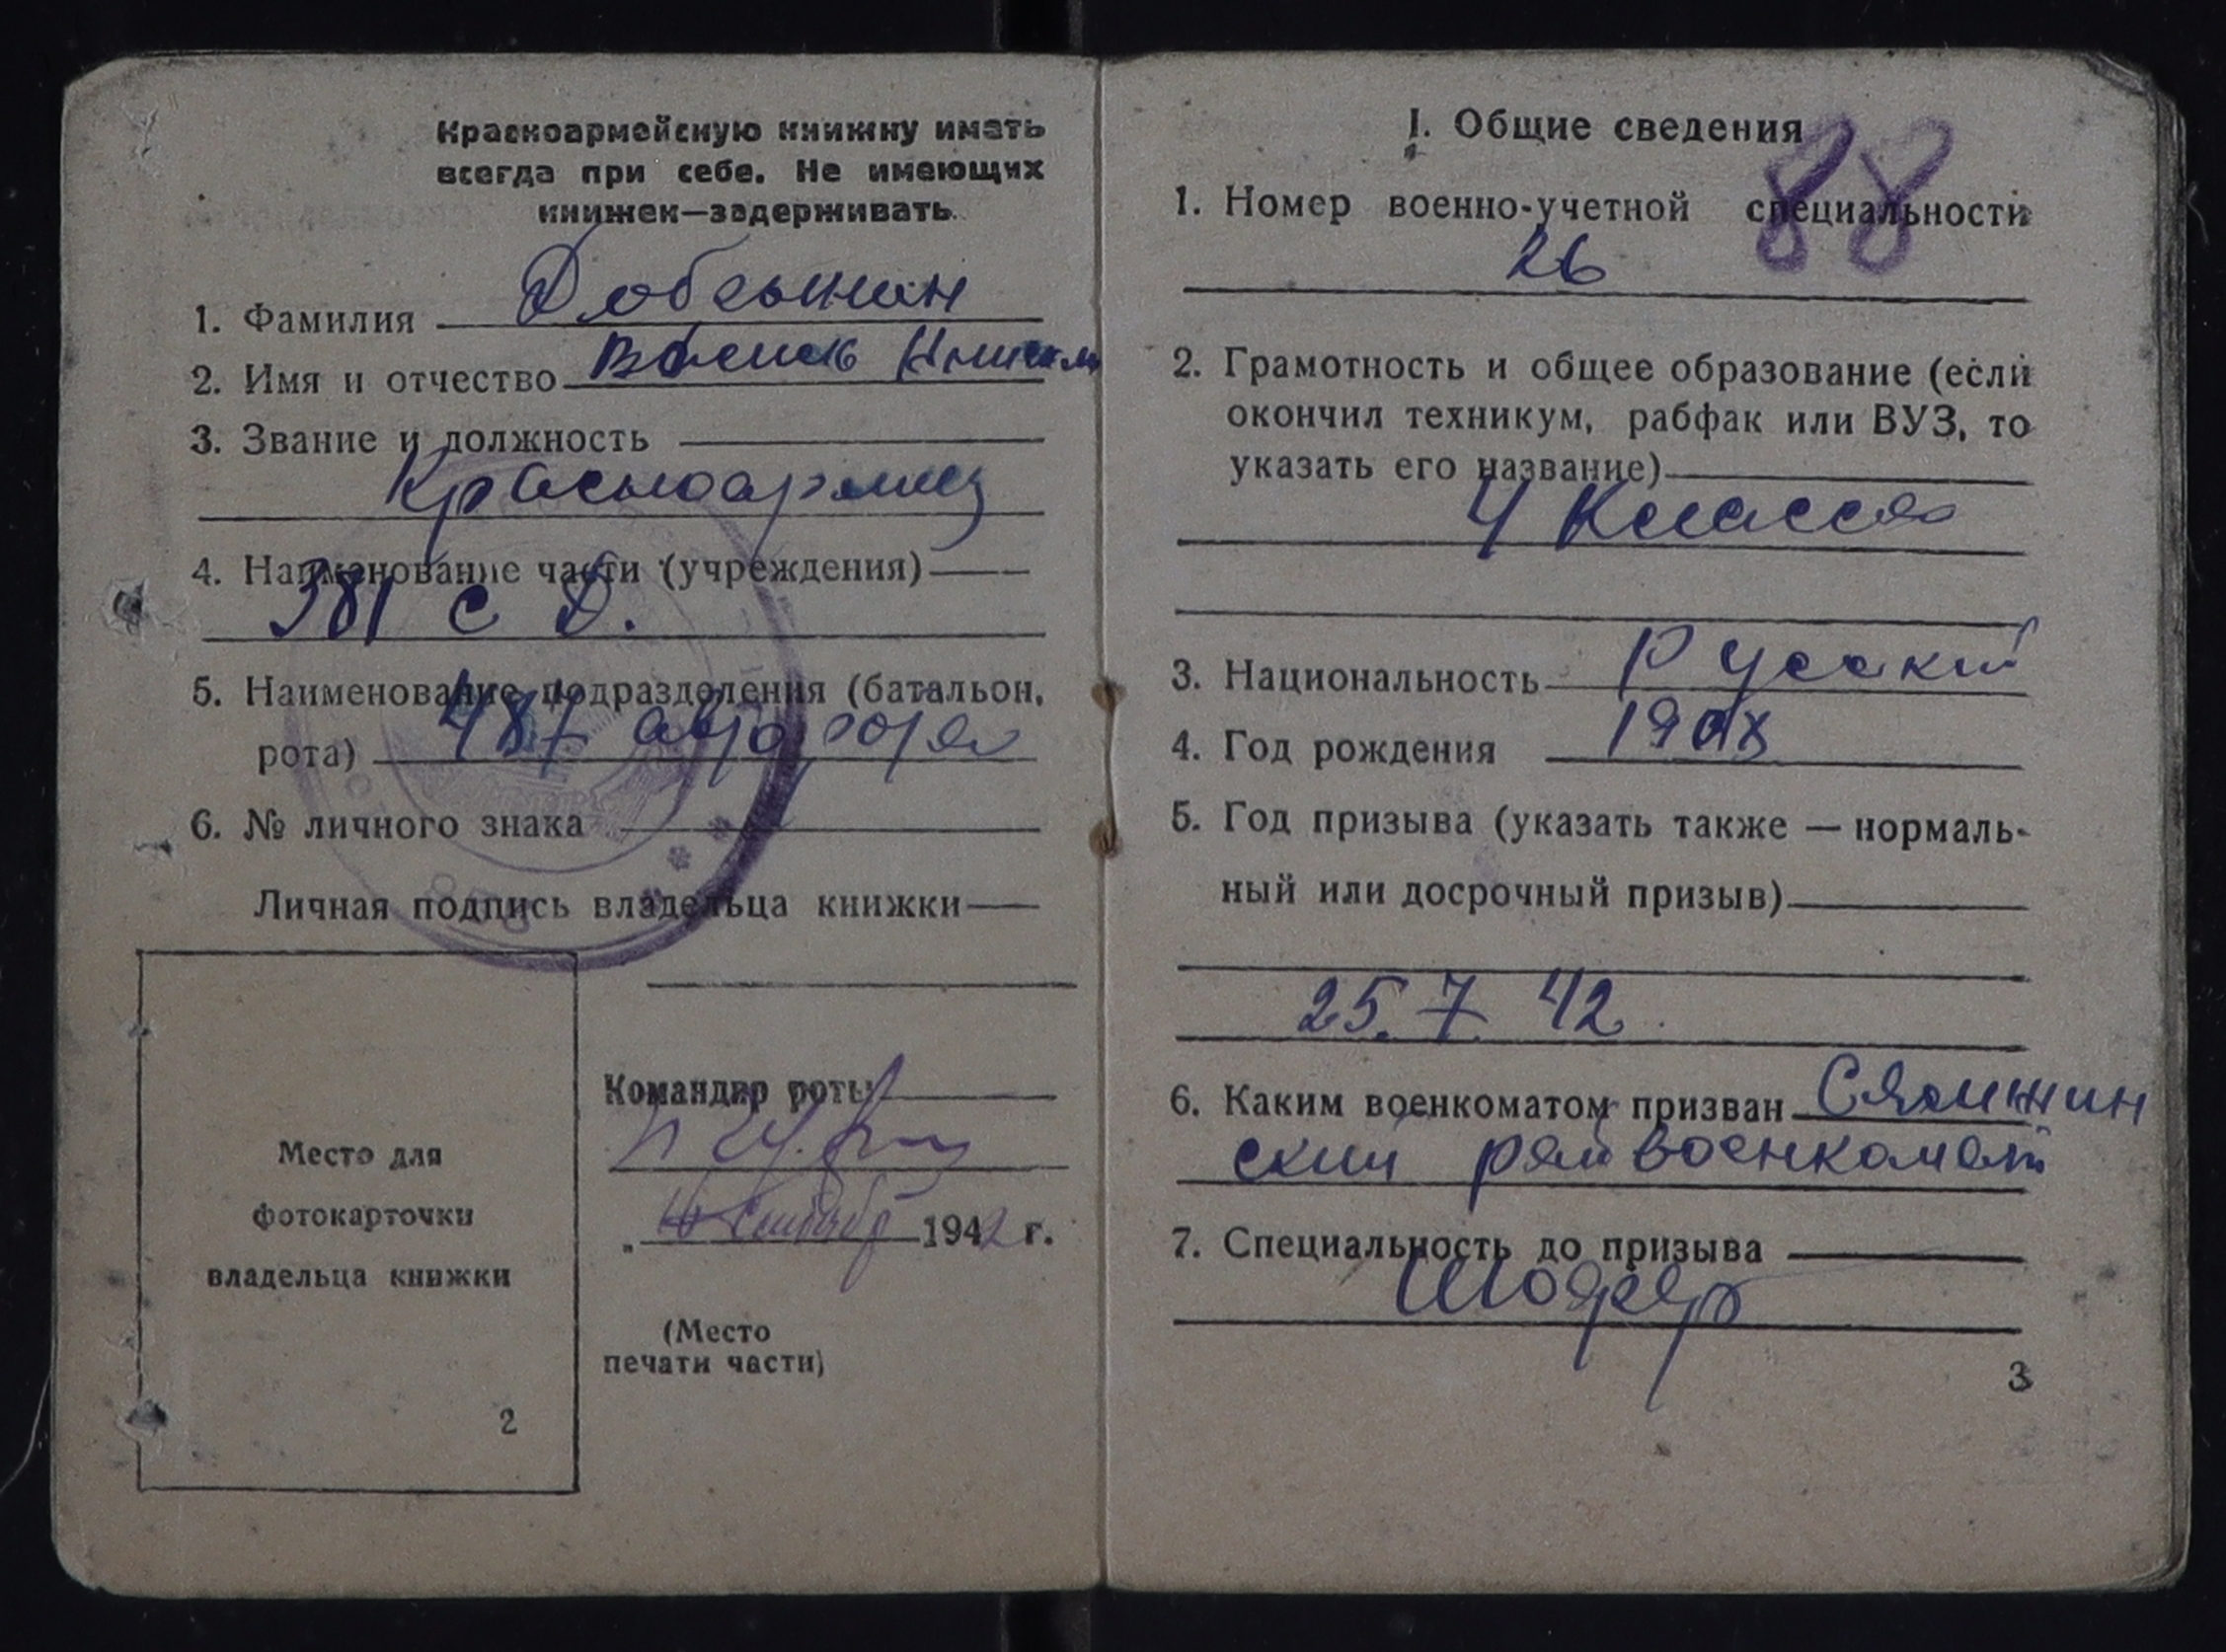 Красноармейскую книжку имать
всегда при себе. Не имеющих
книжек—задерживать.
1. Фамилия Добрынин
2. Имя и отчество
3. Звание и должность
Красноармеец
4. Наименование части (учреждения)
381 с д.
5. Наименование подразделения (батальон,
рота) 487 авто рота
6. № личного знака
Личная подпись владельца книжки
Место для
фотокарточки
владельца книжки
2
Командир роты
1942 г.
(Место
печати части)
88
I. Общие сведения
1. Номер военно-учетной специальности
26
2. Грамотность и общее образование (если
окончил техникум, рабфак или ВУЗ, то
указать его название)
4 класса
3. Национальность Русский
4. Год рождения 1908
5. Год призыва (указать также — нормаль-
ный или досрочный призыв)
25. 7. 42
6. Каким военкоматом призван Сямжин
ский райвоенкомат
7. Специальность до призыва
Шофер
3